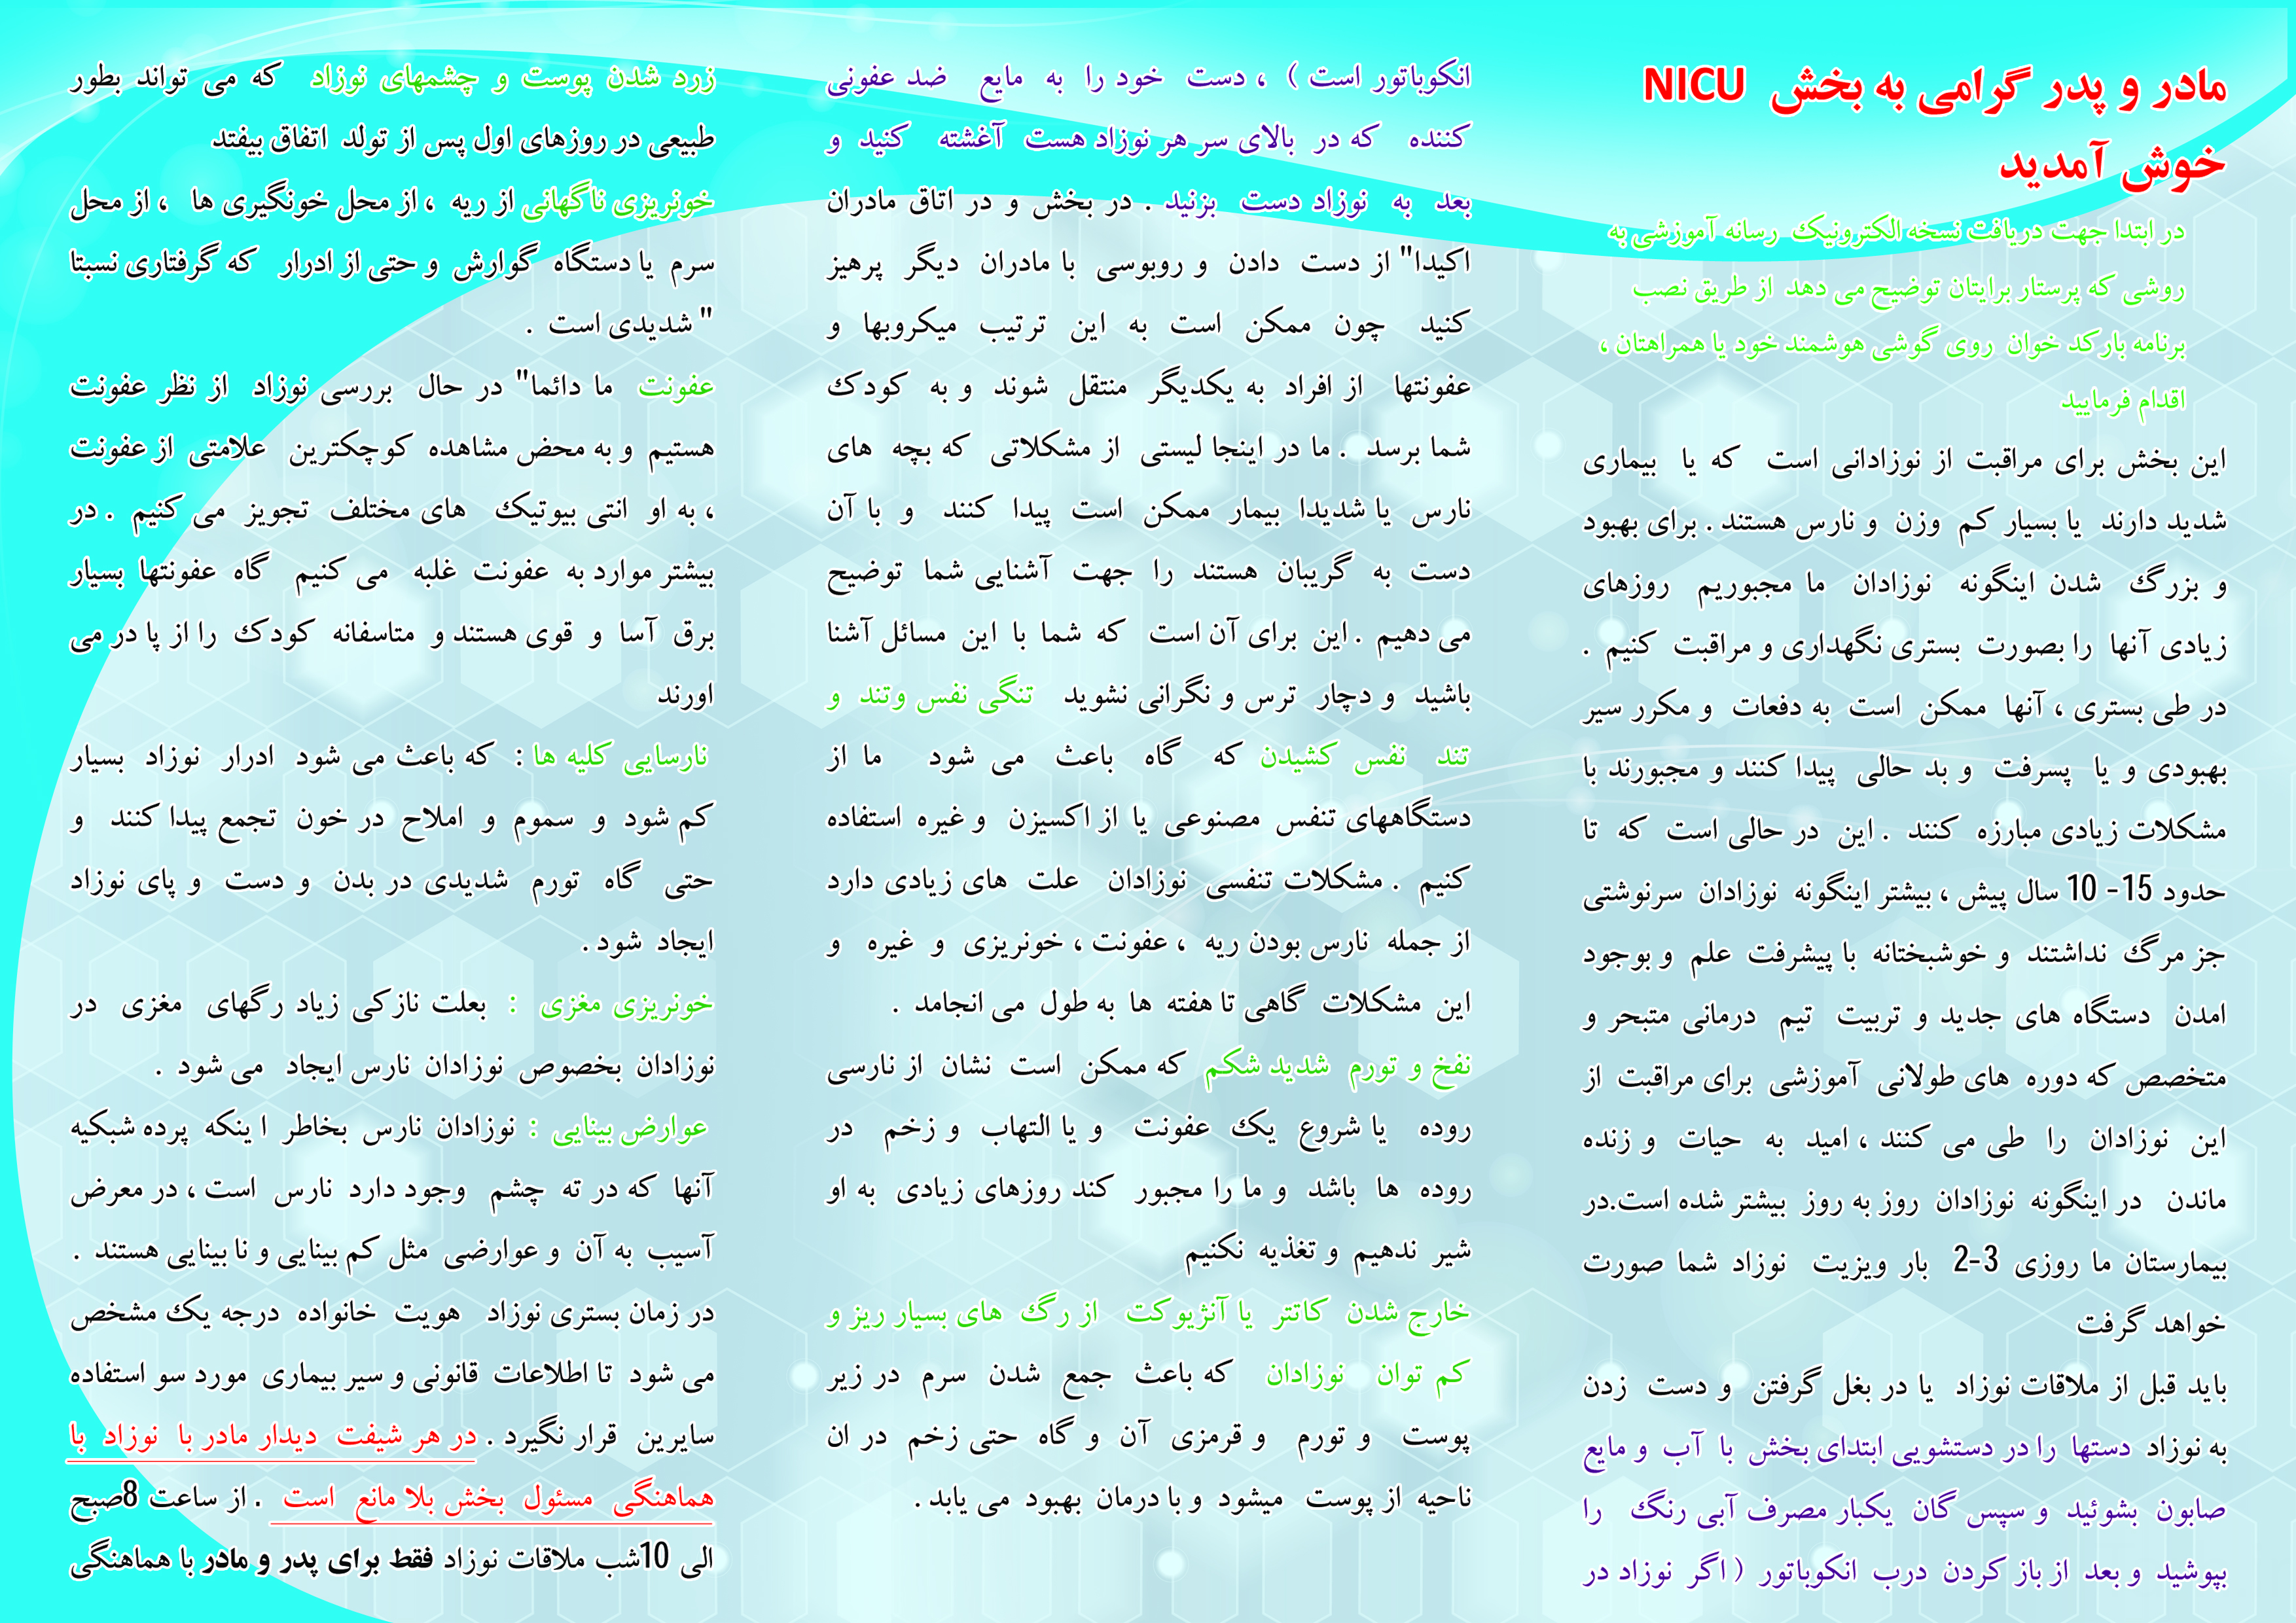 مادر و پدر گرامی به بخش NICU
خوش آمدید
در ابتدا جهت دریافت نسخه الکترونیک رسانه آموزشی به
روشی که پرستار برایتان توضیح می دهد از طریق نصب
برنامه بارکد خوان روی گوشی هوشمند خود یا همراهتان ،
اقدام فرمایید
این بخش برای مراقبت از نوزادانی است که یا بیماری
شدید دارند یا بسیار کم وزن و نارس هستند . برای بهبود
و بزرگ شدن اینگونه نوزادان ما مجبوریم روزهای
زیادی آنها را بصورت بستری نگهداری و مراقبت کنیم .
در طی بستری ، آنها ممکن است به دفعات و مکرر سیر
بهبودی و یا پسرفت و بد حالی پیدا کنند و مجبورند با
مشکلات زیادی مبارزه کنند . این در حالی است که تا
حدود 15- 10 سال پیش ، بیشتر اینگونه نوزادان سرنوشتی
جز مرگ نداشتند و خوشبختانه با پیشرفت علم و بوجود
امدن دستگاه های جدید و تربیت تیم درمانی متبحر و
متخصص که دوره های طولانی آموزشی برای مراقبت از
این نوزادان را طی می کنند ، امید به حیات و زنده
ماندن در اینگونه نوزادان روز به روز بیشتر شده است.در
بیمارستان ما روزی 3-2 بار ویزیت نوزاد شما صورت
خواهد گرفت
باید قبل از ملاقات نوزاد یا در بغل گرفتن و دست زدن
به نوزاد دستها را در دستشویی ابتدای بخش با آب و مایع
صابون بشوئید و سپس گان یکبار مصرف آبی رنگ را
بپوشید و بعد از باز کردن درب انکوباتور ( اگر نوزاد در
انکوباتور است ) ، دست خود را به مایع ضد عفونی
کننده که در بالای سر هر نوزاد هست آغشته کنید و
بعد به نوزاد دست بزنید . در بخش و در اتاق مادران
اکیدا" از دست دادن و روبوسی با مادران دیگر پرهیز
کنید چون ممکن است به این ترتیب میکروبها و
عفونتها از افراد به یکدیگر منتقل شوند و به کودک
شما برسد . ما در اینجا لیستی از مشکلاتی که بچه های
نارس یا شدیدا بیمار ممکن است پیدا کنند و با آن
دست به گریبان هستند را جهت آشنایی شما توضیح
می دهیم . این برای آن است که شما با این مسائل آشنا
باشید و دچار ترس و نگرانی نشوید تنگی نفس وتند و
تند نفس کشیدن که گاه باعث می شود ما از
دستگاههای تنفس مصنوعی یا از اکسیزن و غیره استفاده
کنیم . مشکلات تنفسی نوزادان علت های زیادی دارد
از جمله نارس بودن ریه ، عفونت ، خونریزی و غیره و
این مشکلات گاهی تا هفته ها به طول می انجامد .
نفخ و تورم شدید شکم که ممکن است نشان از نارسی
روده یا شروع یک عفونت و یا التهاب و زخم در
روده ها باشد و ما را مجبور کند روزهای زیادی به او
شیر ندهیم و تغذیه نکنیم
خارج شدن کاتتر یا آنژیوکت از رگ های بسیار ریز و
کم توان نوزادان که باعث جمع شدن سرم در زیر
پوست و تورم و قرمزی آن و گاه حتی زخم در ان
ناحیه از پوست میشود و با درمان بهبود می یابد .
زرد شدن پوست و چشمهای نوزاد که می تواند بطور
طبیعی در روزهای اول پس از تولد اتفاق بیفتد
خونریزی ناگهانی از ریه ، از محل خونگیری ها ، از محل
سرم یا دستگاه گوارش و حتی از ادرار که گرفتاری نسبتا
" شدیدی است .
عفونت ما دائما" در حال بررسی نوزاد از نظر عفونت
هستیم و به محض مشاهده کوچکترین علامتی از عفونت
، به او انتی بیوتیک های مختلف تجویز می کنیم . در
بیشتر موارد به عفونت غلبه می کنیم گاه عفونتها بسیار
برق آسا و قوی هستند و متاسفانه کودک را از پا در می
اورند
نارسایی کلیه ها : که باعث می شود ادرار نوزاد بسیار
کم شود و سموم و املاح در خون تجمع پیدا کنند و
حتی گاه تورم شدیدی در بدن و دست و پای نوزاد
ایجاد شود .
خونریزی مغزی : بعلت نازکی زیاد رگهای مغزی در
نوزادان بخصوص نوزادان نارس ایجاد می شود .
عوارض بینایی : نوزادان نارس بخاطر ا ینکه پرده شبکیه
آنها که در ته چشم وجود دارد نارس است ، در معرض
آسیب به آن و عوارضی مثل کم بینایی و نا بینایی هستند .
در زمان بستری نوزاد هویت خانواده درجه یک مشخص
می شود تا اطلاعات قانونی و سیر بیماری مورد سو استفاده
سایرین قرار نگیرد . در هر شیفت دیدار مادر با نوزاد با
هماهنگی مسئول بخش بلا مانع است . از ساعت 8صبح
الی 10شب ملاقات نوزاد فقط برای پدر و مادر با هماهنگی